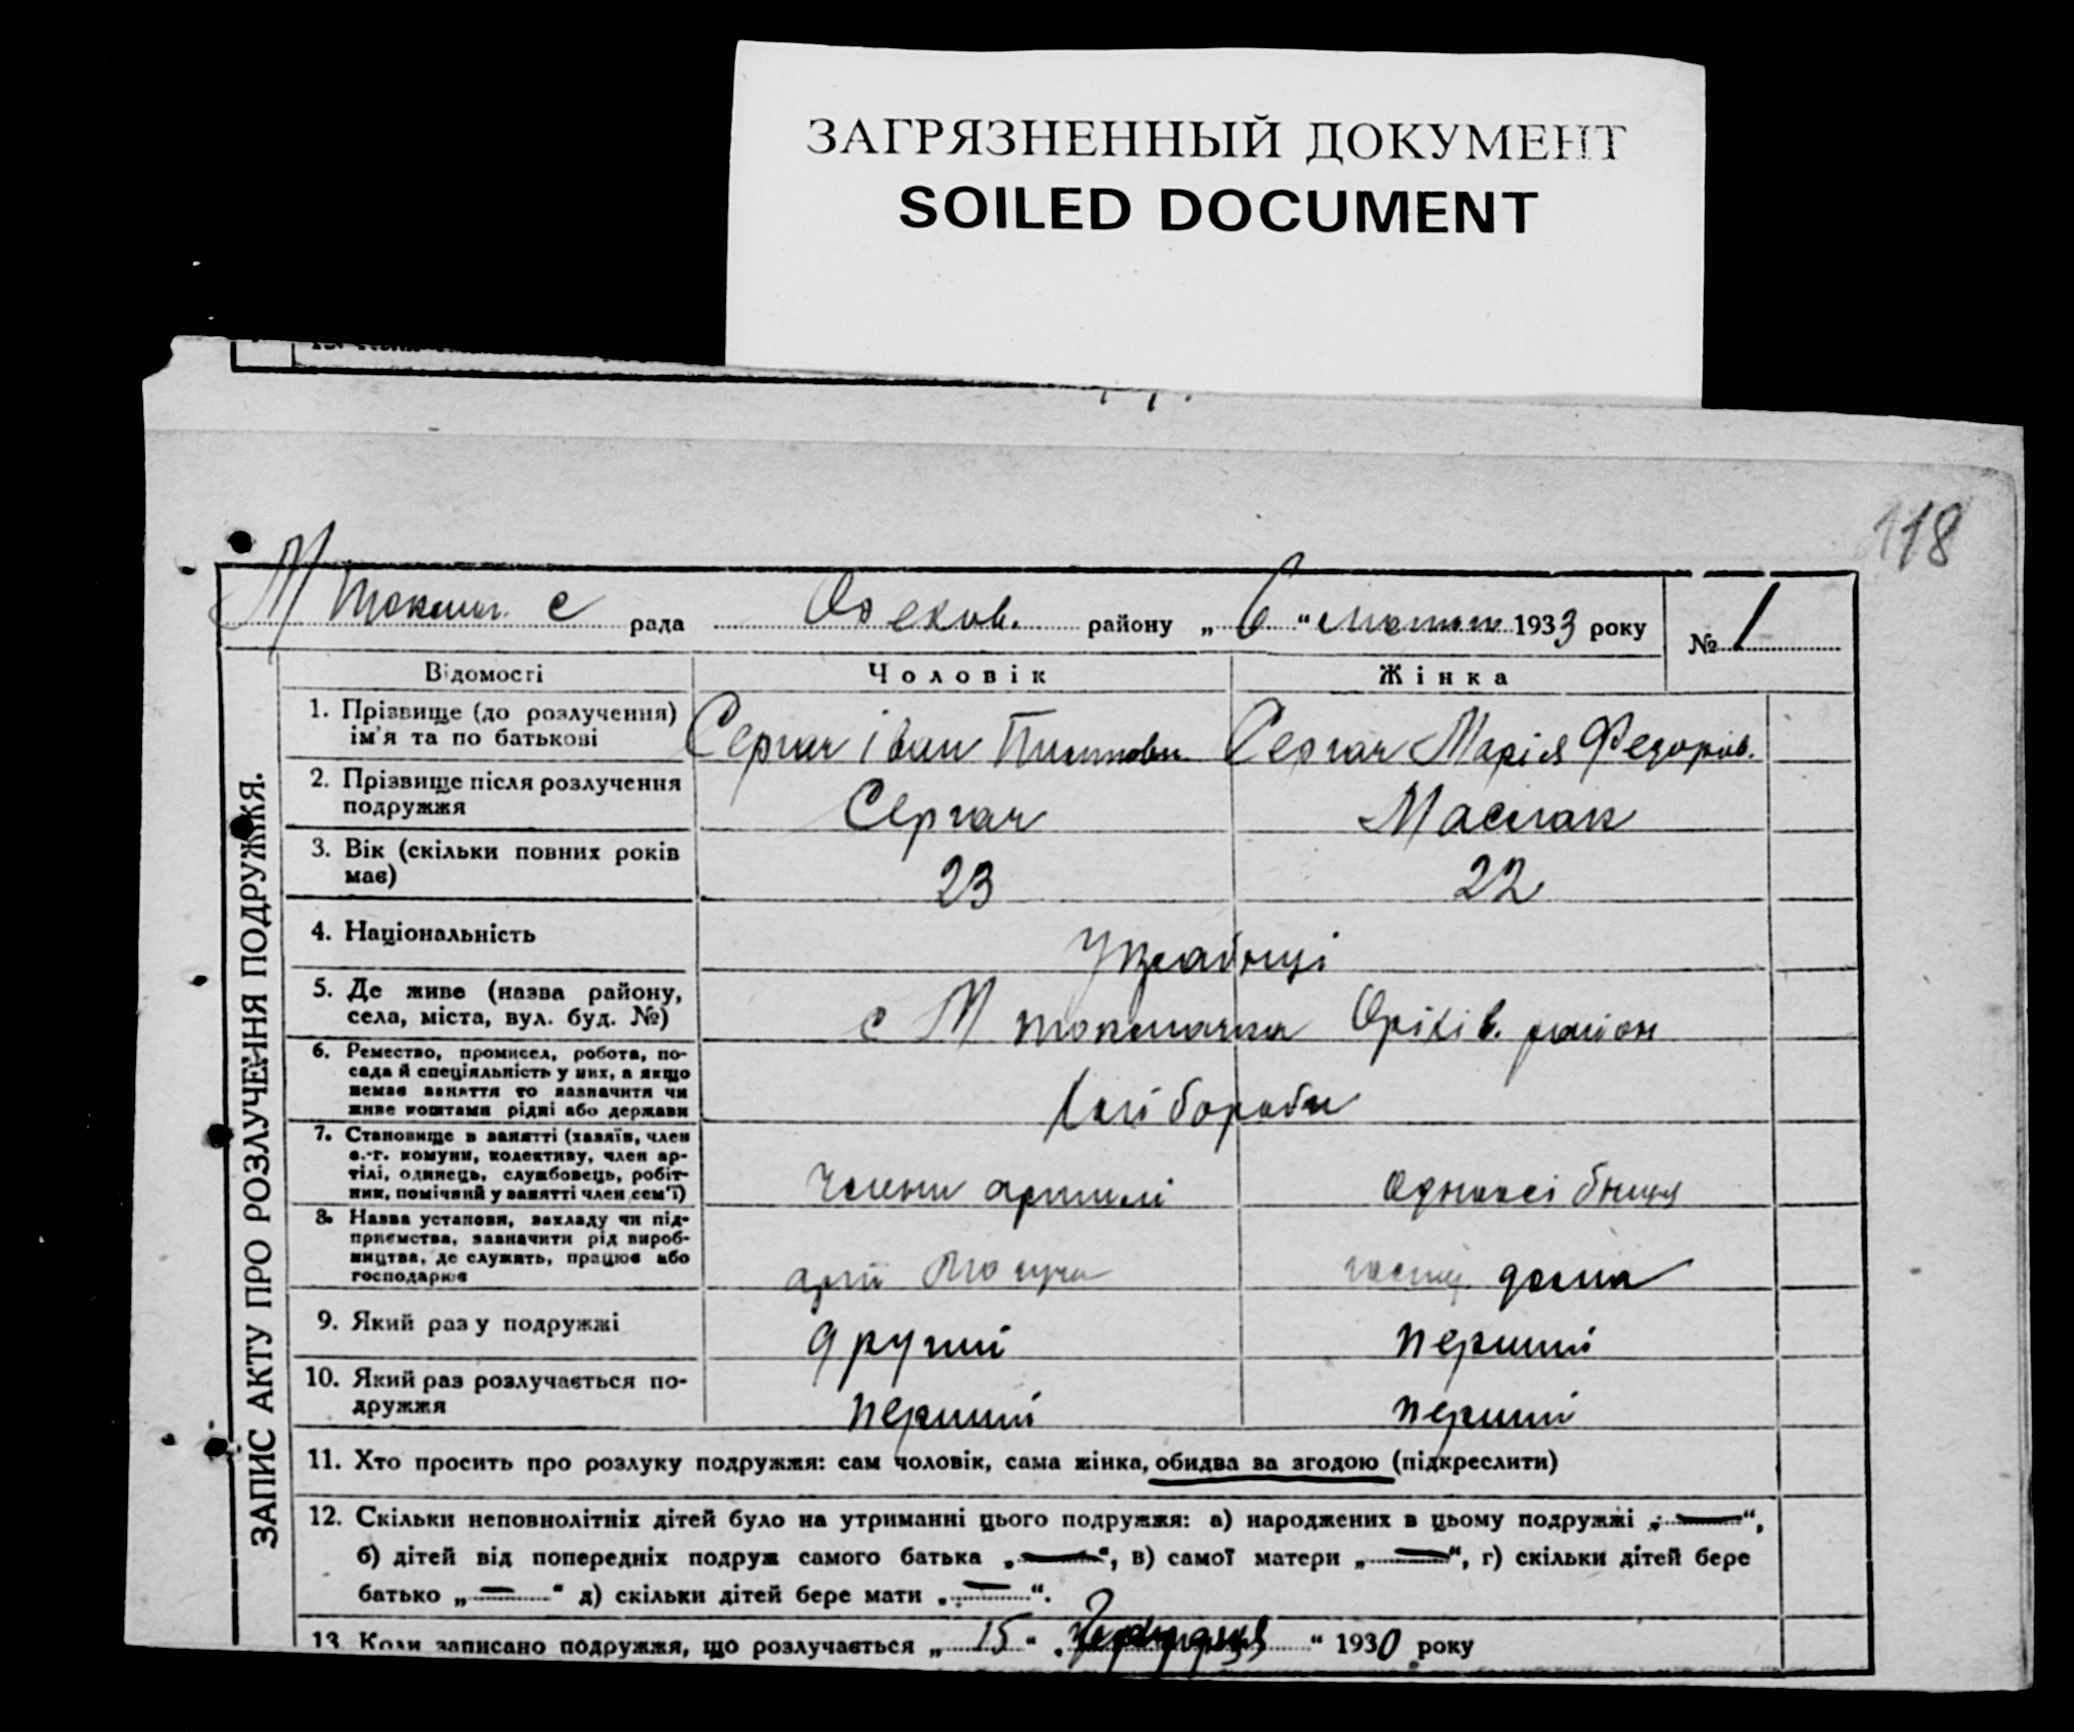 ЗАГРЯЗНЕННЫЙ ДОКУМЕНТ
SOILED DOCUMENT
118
М Токмач. с рада Оріхов. району „ 6 “ 1933 року № 1
ЗАПИС АКТУ ПРО РОЗЛУЧЕННЯ ПОДРУЖЖЯ.
Відомості Чоловік Жінка
1. Прізвище (до розлучення)
ім'я та по батькові
Сергач Іван Сергач Марія Федоров.
2. Прізвище після розлучення
подружжя
Сергач Маслак
3. Вік (скільки повних років
має)
23 22
4. Національність
Українці
5. Де живе (назва району,
села, міста, вул. буд. №)
с М токмачка Оріхів. район
6. Ремество, промисел, робота, по-
сада й спеціяльність у них, а якщо
немає заняття то зазначити чи
живе коштами рідні або держави
Хлібороби
7. Становище в занятті (хазяїн, член
с.-г. комуни, колективу, член ар-
тілі, одинець, службовець, робіт-
ник, помічний у занятті член сем'ї)
Члени артилі
8. Назва установи, закладу чи під-
приємства, зазначити рід вироб-
ництва, де служить, працює або
господарює
дома
9. Який раз у подружжі
другий перший
10. Який раз розлучається по-
дружжя
перший перший
11. Хто просить про розлуку подружжя: сам чоловік, сама жінка, обидва за згодою (підкреслити)
12. Скільки неповнолітніх дітей було на утриманні цього подружжя: а) народжених в цьому подружжі „—“,
б) дітей від попередніх подруж самого батька „—“, в) самої матери „—“, г) скільки дітей бере
батько „—“ д) скільки дітей бере мати „—“.
13. Коли записано подружжя, що розлучається „ 15 “ „ “ 1930 року